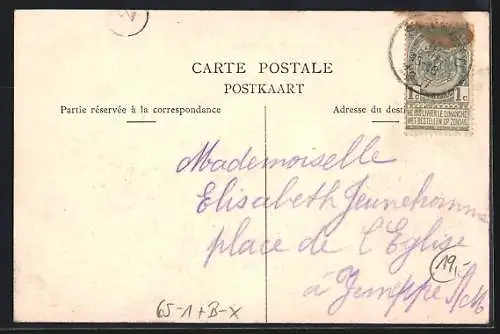 CARTE POSTALE
POSTKAART
Partie réservée à la correspondance
Adresse du desti
1 1c
NE PAS LIVRER LE DIMANCHE
NIET BESTELLEN OP ZONDAG
Mademoiselle
Elisabeth Jeunehomme
place de l'Eglise
à Jemeppe s/M
19,-
65-1+B-X